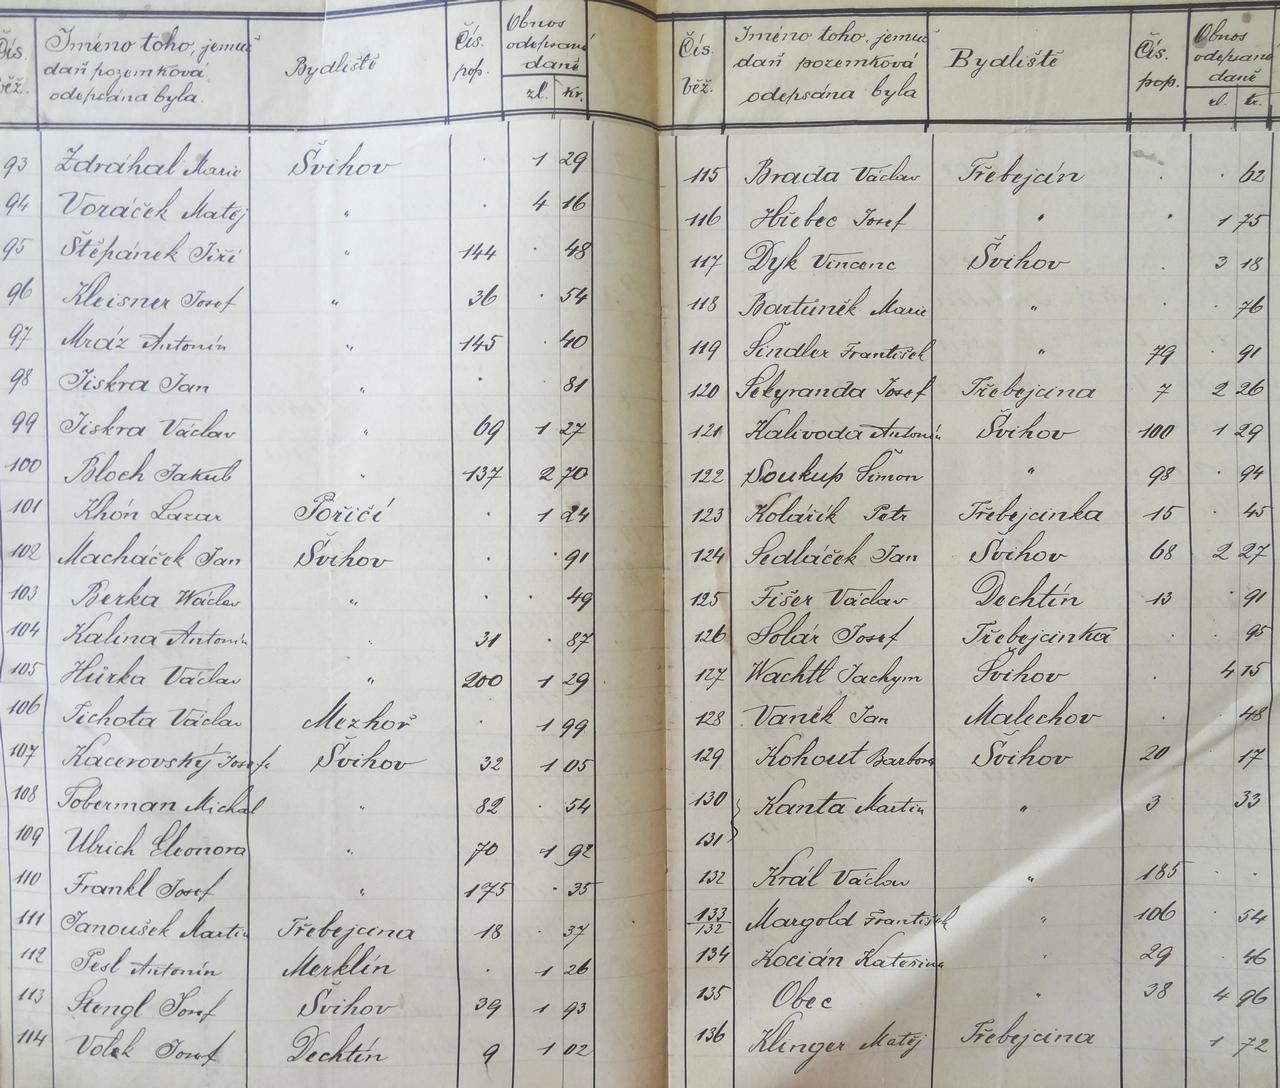 Čís. běž. Jméno toho, jemuž daň pozemková odepsána byla. Bydliště Čís. pop. Obnos odepsané daně zl. kr.
93 Zdráhal Marie Švihov . 1 29
94 Voráček Matěj " . 4 16
95 Štěpánek Jiří " 144 . 48
96 Kleisner Josef " 36 . 54
97 Mráz Antonín " 145 . 40
98 Jiskra Jan " . 81
99 Jiskra Václav " 69 1 27
100 Bloch Jakub " 137 2 70
101 Khón Lazar Poříčí . 1 24
102 Macháček Jan Švihov . . 91
103 Berka Wáclav " . . 49
104 Kalina Antonín " 31 . 87
105 Hůrka Václav " 200 1 29
106 Tichota Václav Mezhoř . 1 99
107 Kacerovský Josefa Švihov 32 1 05
108 Toberman Michal " 82 . 54
109 Ulrich Eleonora " 70 1 92
110 Frankl Josef " 175 . 35
111 Janoušek Martin Třebejcina 18 . 37
112 Pesl Antonín Merklín . 1 26
113 Stengl Josef Švihov 39 1 93
114 Volek Josef Dechtín 9 1 02
Čís. běž. Jméno toho, jemuž daň pozemková odepsána byla Bydliště Čís. pop. Obnos odepsané daně zl. kr.
115 Brada Václav Třebejcín . . 62
116 Hřebec Josef " " 1 75
117 Dyk Vincenc Švihov . 3 18
118 Bartůněk Marie " 76
119 Šindler František " 79 . 91
120 Sekyranda Josef Třebejcina 7 2 26
121 Kalivoda Antonín Švihov 100 1 29
122 Soukup Šimon " 98 . 94
123 Kolářík Petr Třebejcinka 15 . 45
124 Sedláček Jan Švihov 68 2 27
125 Fišer Václav Dechtín 13 . 91
126 Solár Josef Třebejcinka . . 95
127 Wachtl Jachym Švihov . 4 15
128 Vaněk Jan Malechov . . 48
129 Kohout Barbora Švihov 20 . 17
130 Kanta Martin " 3 33
131
132 Král Václav " 185 . .
133/132 Margold František " 106 . 54
134 Kocián Kateřina " 29 . 46
135 Obec " 38 4 96
136 Klinger Matěj Třebejcina 1 72